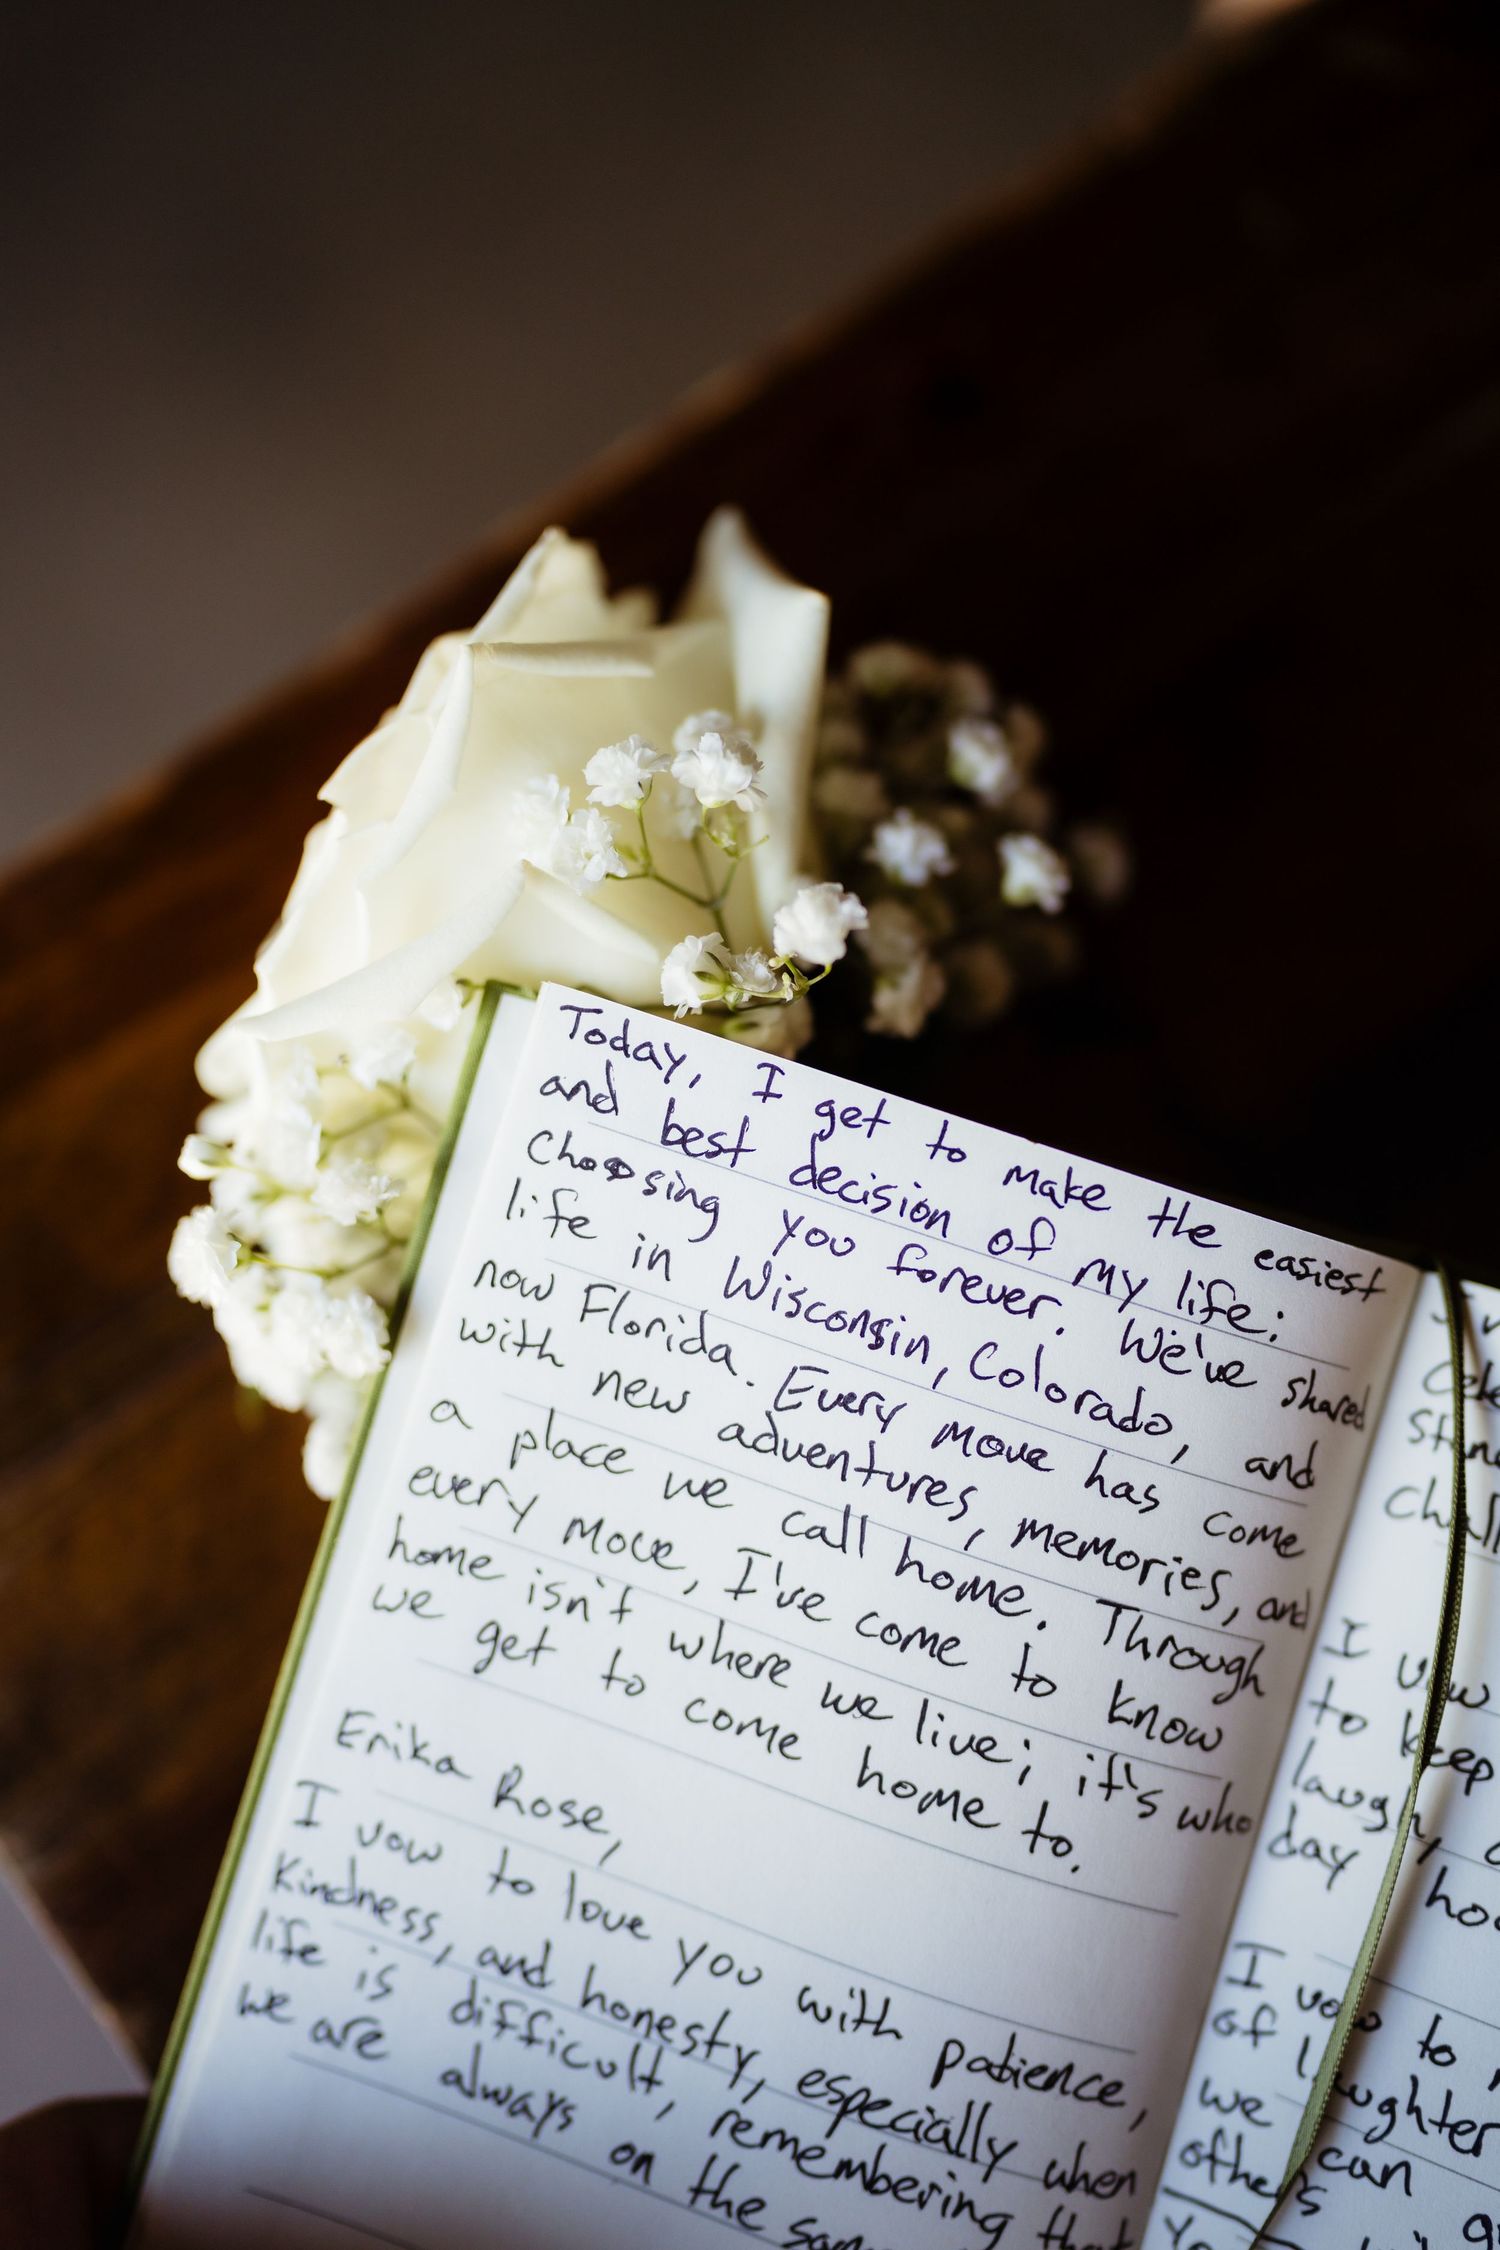 Today, I get to make the easiest
and best decision of my life:
Choosing you forever. We've shared
life in Wisconsin, Colorado, and
now Florida. Every move has come
with new adventures, memories, and
a place we call home. Through
every move, I've come to know
home isn't where we live; it's who
we get to come home to.
Erika Rose,
I vow to love you with patience,
kindness, and honesty, especially when
life is difficult, remembering that
we are always on the
I vow
to keep
laugh,
day
I vow to
of laughter
we can
others